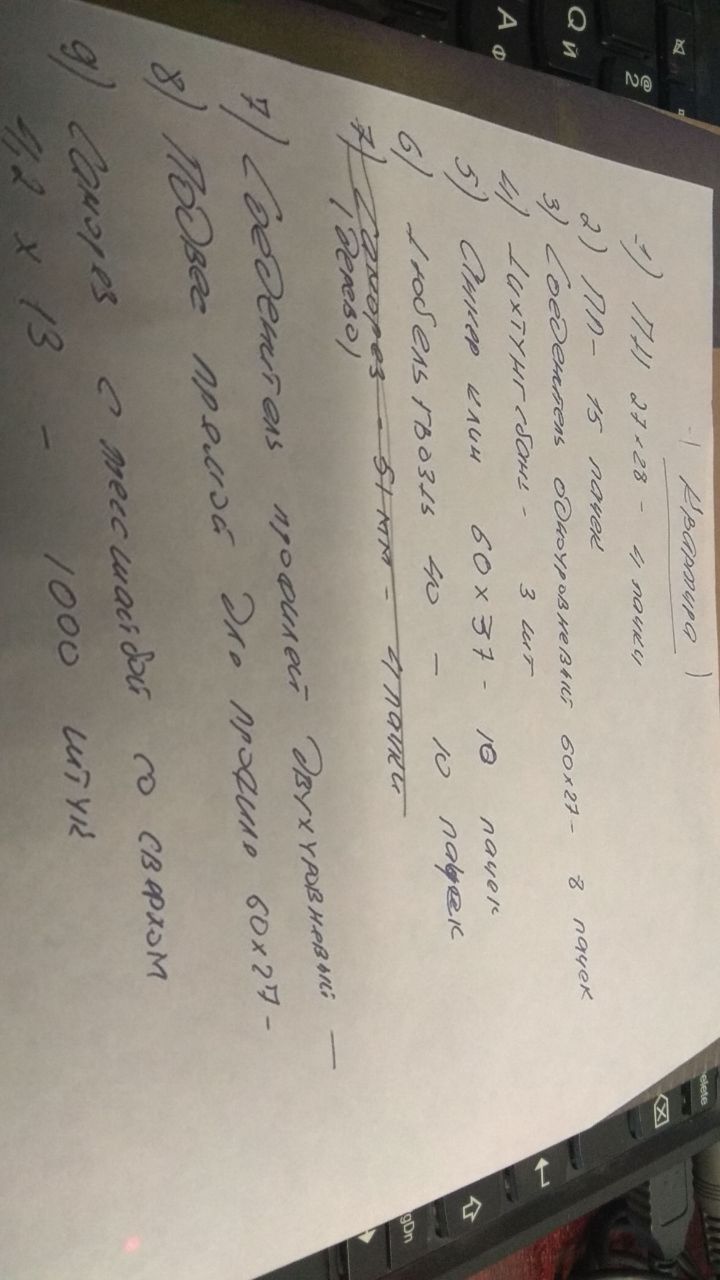 ( Квартира )
1) ПН 27×28 - 4 пачки
2) ПП - 15 пачек
3) Соеденитель одноуровневый 60×27 - 8 пачек
4) Дихтунгсбанд - 3 шт
5) Анкер клин 60×37 - 10 пачек
6) Дюбель гвоздь 40 - 10 пачек
7) Саморез - 51 мм - 4 пачки
(дерево)
7) Соеденитель профилей двухуровневый -
8) Подвес прямой для профиля 60×27 -
9) Саморез с прессшайбой со сверлом
4,2 × 13 - 1000 штук
Q Й
A Ф
@ 2
elete
gDn